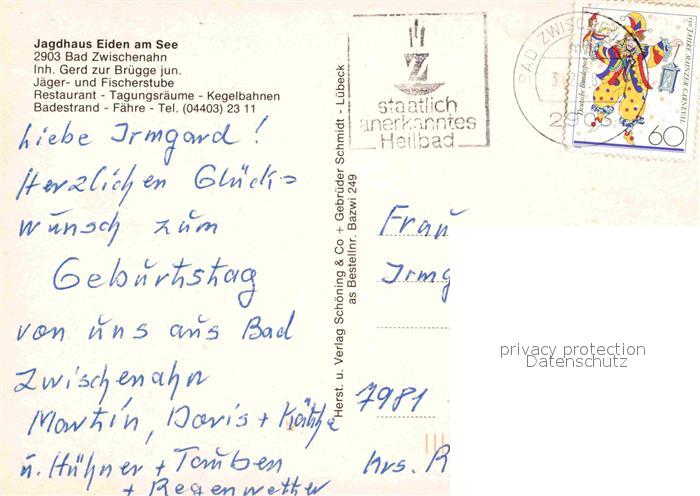 Jagdhaus Eiden am See
2903 Bad Zwischenahn
Inh. Gerd zur Brügge jun.
Jäger- und Fischerstube
Restaurant - Tagungsräume - Kegelbahnen
Badestrand - Fähre - Tel. (04403) 23 11
Liebe Irmgard!
Herzlichen Glück=
wunsch zum
Geburtstag
von uns aus Bad
Zwischenahn
Martin, Doris + Käthe
u. Hühner + Tauben
+ Regenwetter
Herst. u. Verlag Schöning & Co + Gebrüder Schmidt - Lübeck
as Bestellnr. Bazwi 249
staatlich
anerkanntes
Heilbad
BAD ZWISCHEN
2903
Deutsche Bundespost
150 JAHRE MAINZER CARNEVAL
60
Frau
Irmg
7981
Krs. R
privacy protection
Datenschutz